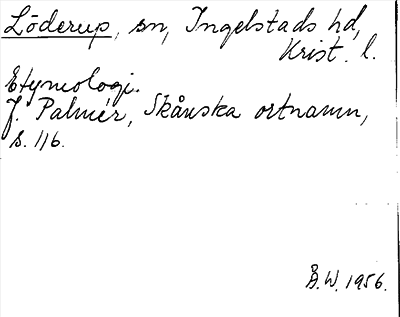 Löderup, sn, Ingelstads hd,
Krist. l.
Etymologi.
J. Palmér, Skånska ortnamn,
s. 116.
Å.W. 1956.